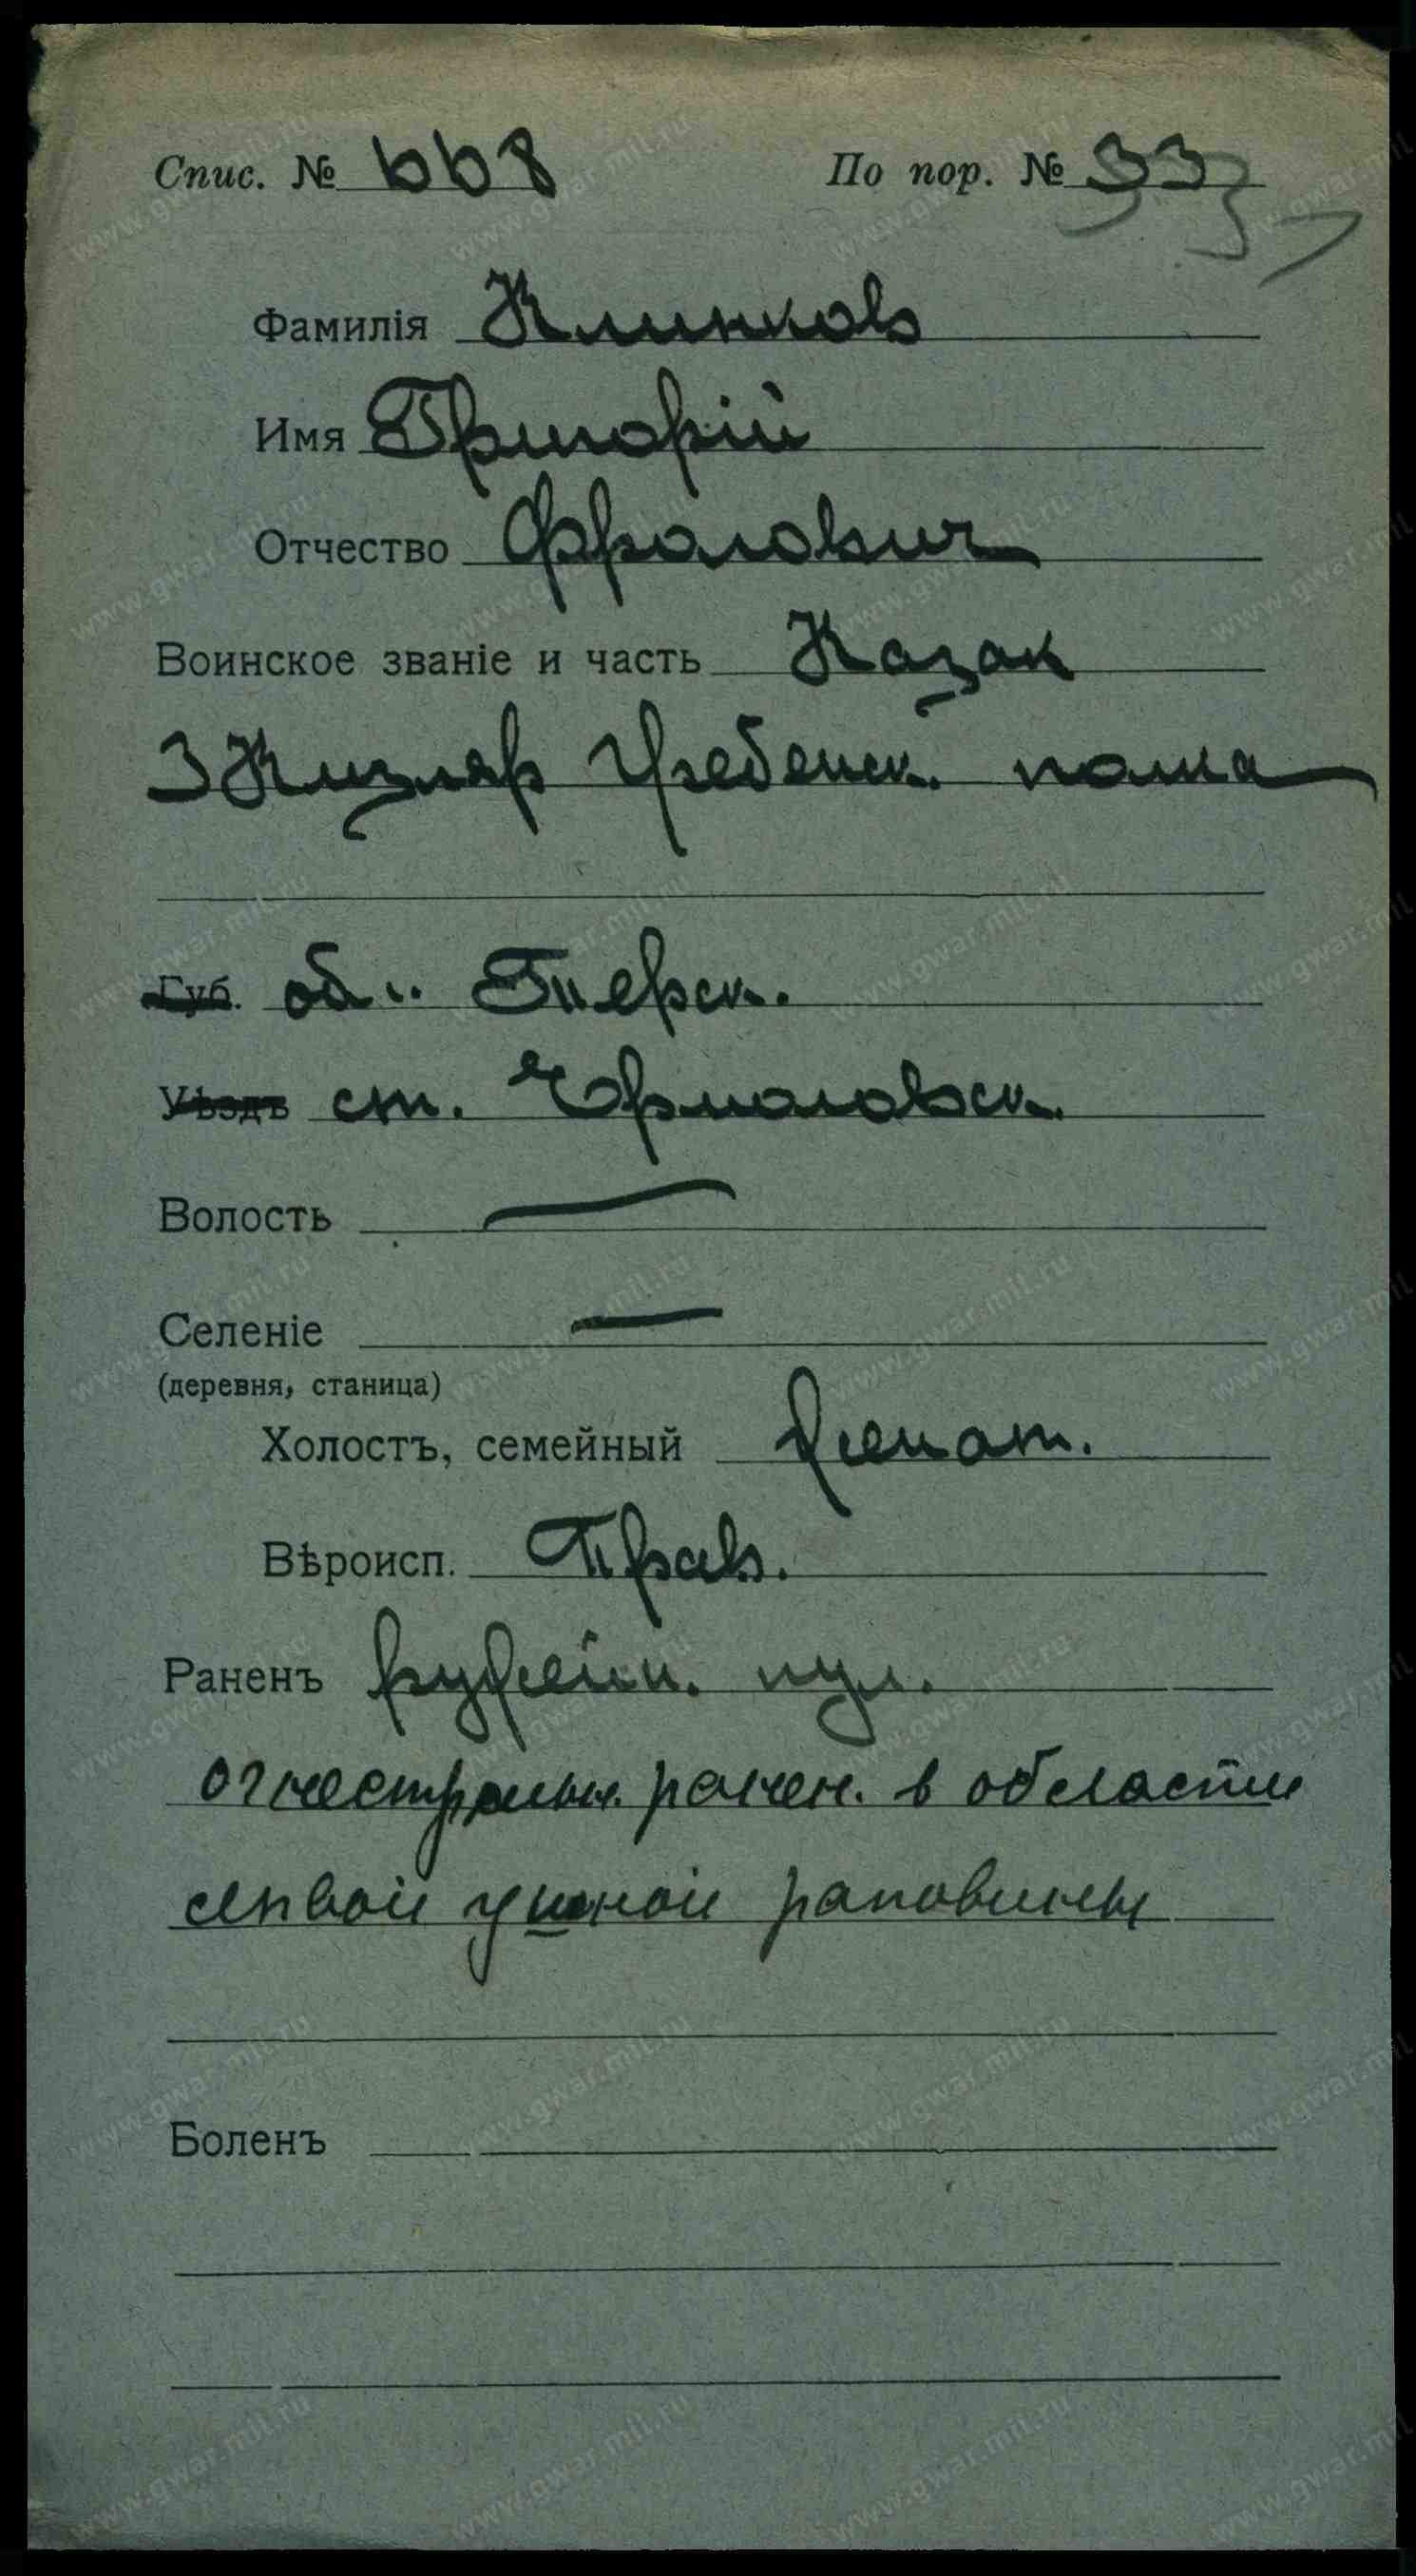 Спис. № 668 По пор. № 33
Фамилія Клинков
Имя Григорій
Отчество Фролович
Воинское званіе и часть Казак
3 Кизляр Гребенск. полка
Губ. обл. Терск.
Уѣздъ ст. Ермоловск.
Волость —
Селеніе —
(деревня, станица)
Холостъ, семейный Женат.
Вѣроисп. Прав.
Раненъ ружейн. пул.
огнестрельн. ранен. в области
лѣвой ушной раковины
Боленъ